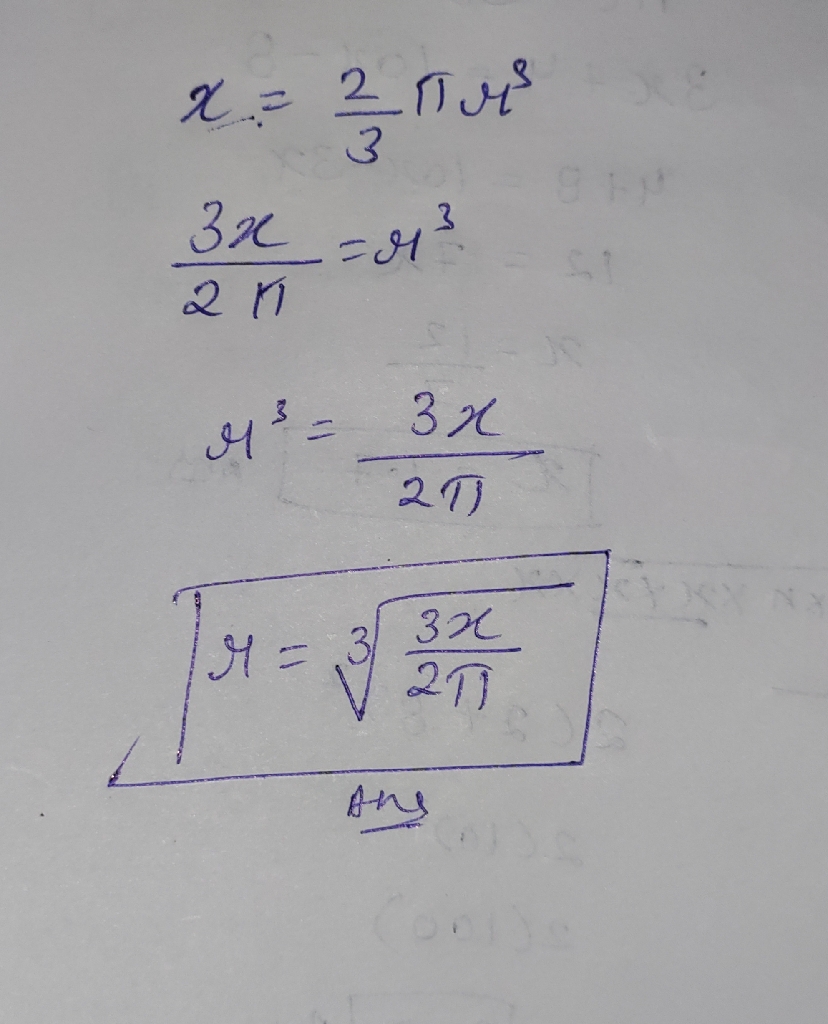 x = 2/3 πr³
3x/2π = r³
r³ = 3x/2π
r = ∛(3x/2π)
Ans